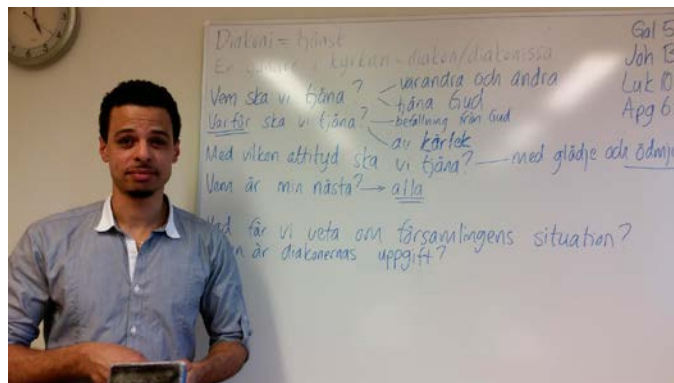 Diakoni = tjänst
En tjänare i kyrkan = diakon/diakonissa
Vem ska vi tjäna? varandra och andra
tjäna Gud
Varför ska vi tjäna? befallning från Gud
av kärlek
Med vilken attityd ska vi tjäna? — med glädje och ödmj
Vem är min nästa? → alla
Vad får vi veta om församlingens situation?
är diakonernas uppgift?
Gal 5
Joh 13
Luk 10
Apg 6